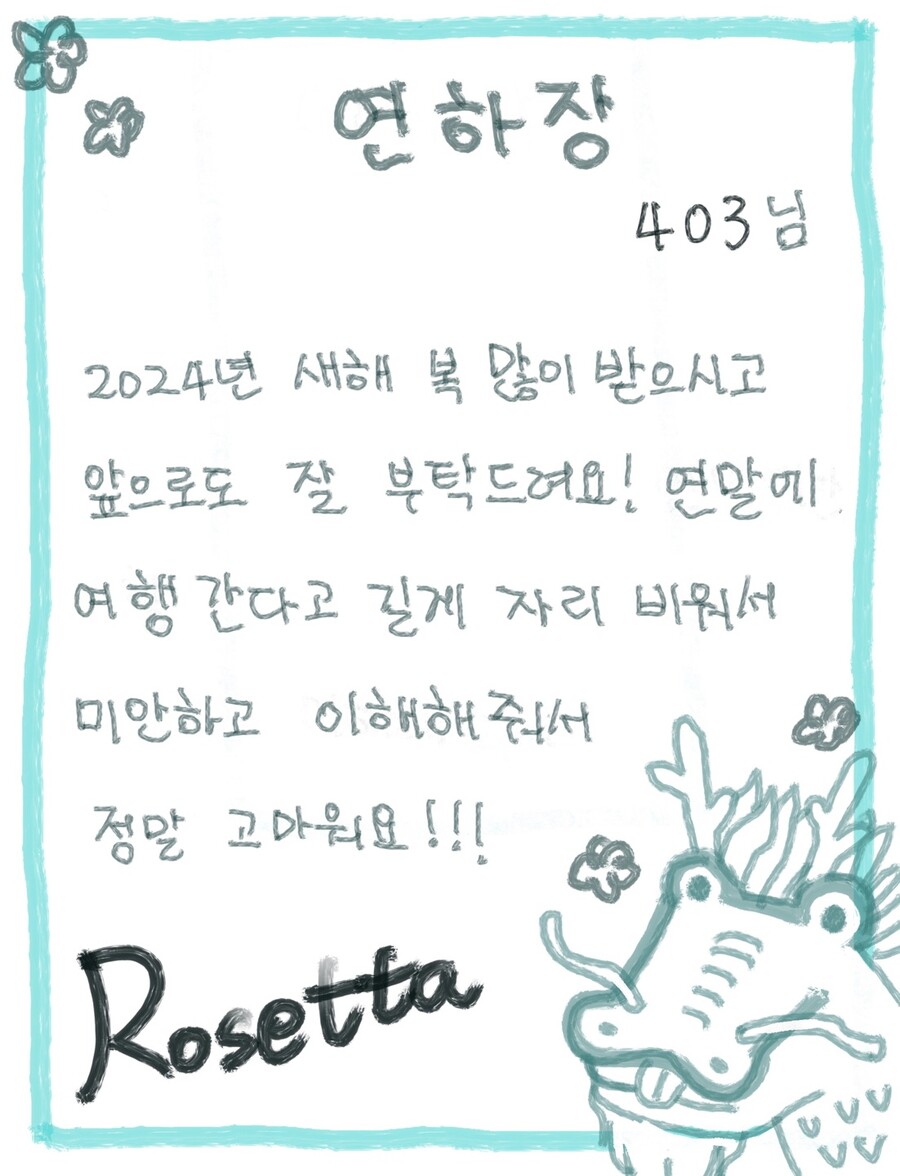 연하장
403님
2024년 새해 복 많이 받으시고
앞으로도 잘 부탁드려요! 연말에
여행 간다고 길게 자리 비워서
미안하고 이해해줘서
정말 고마워요!!!
Rosetta